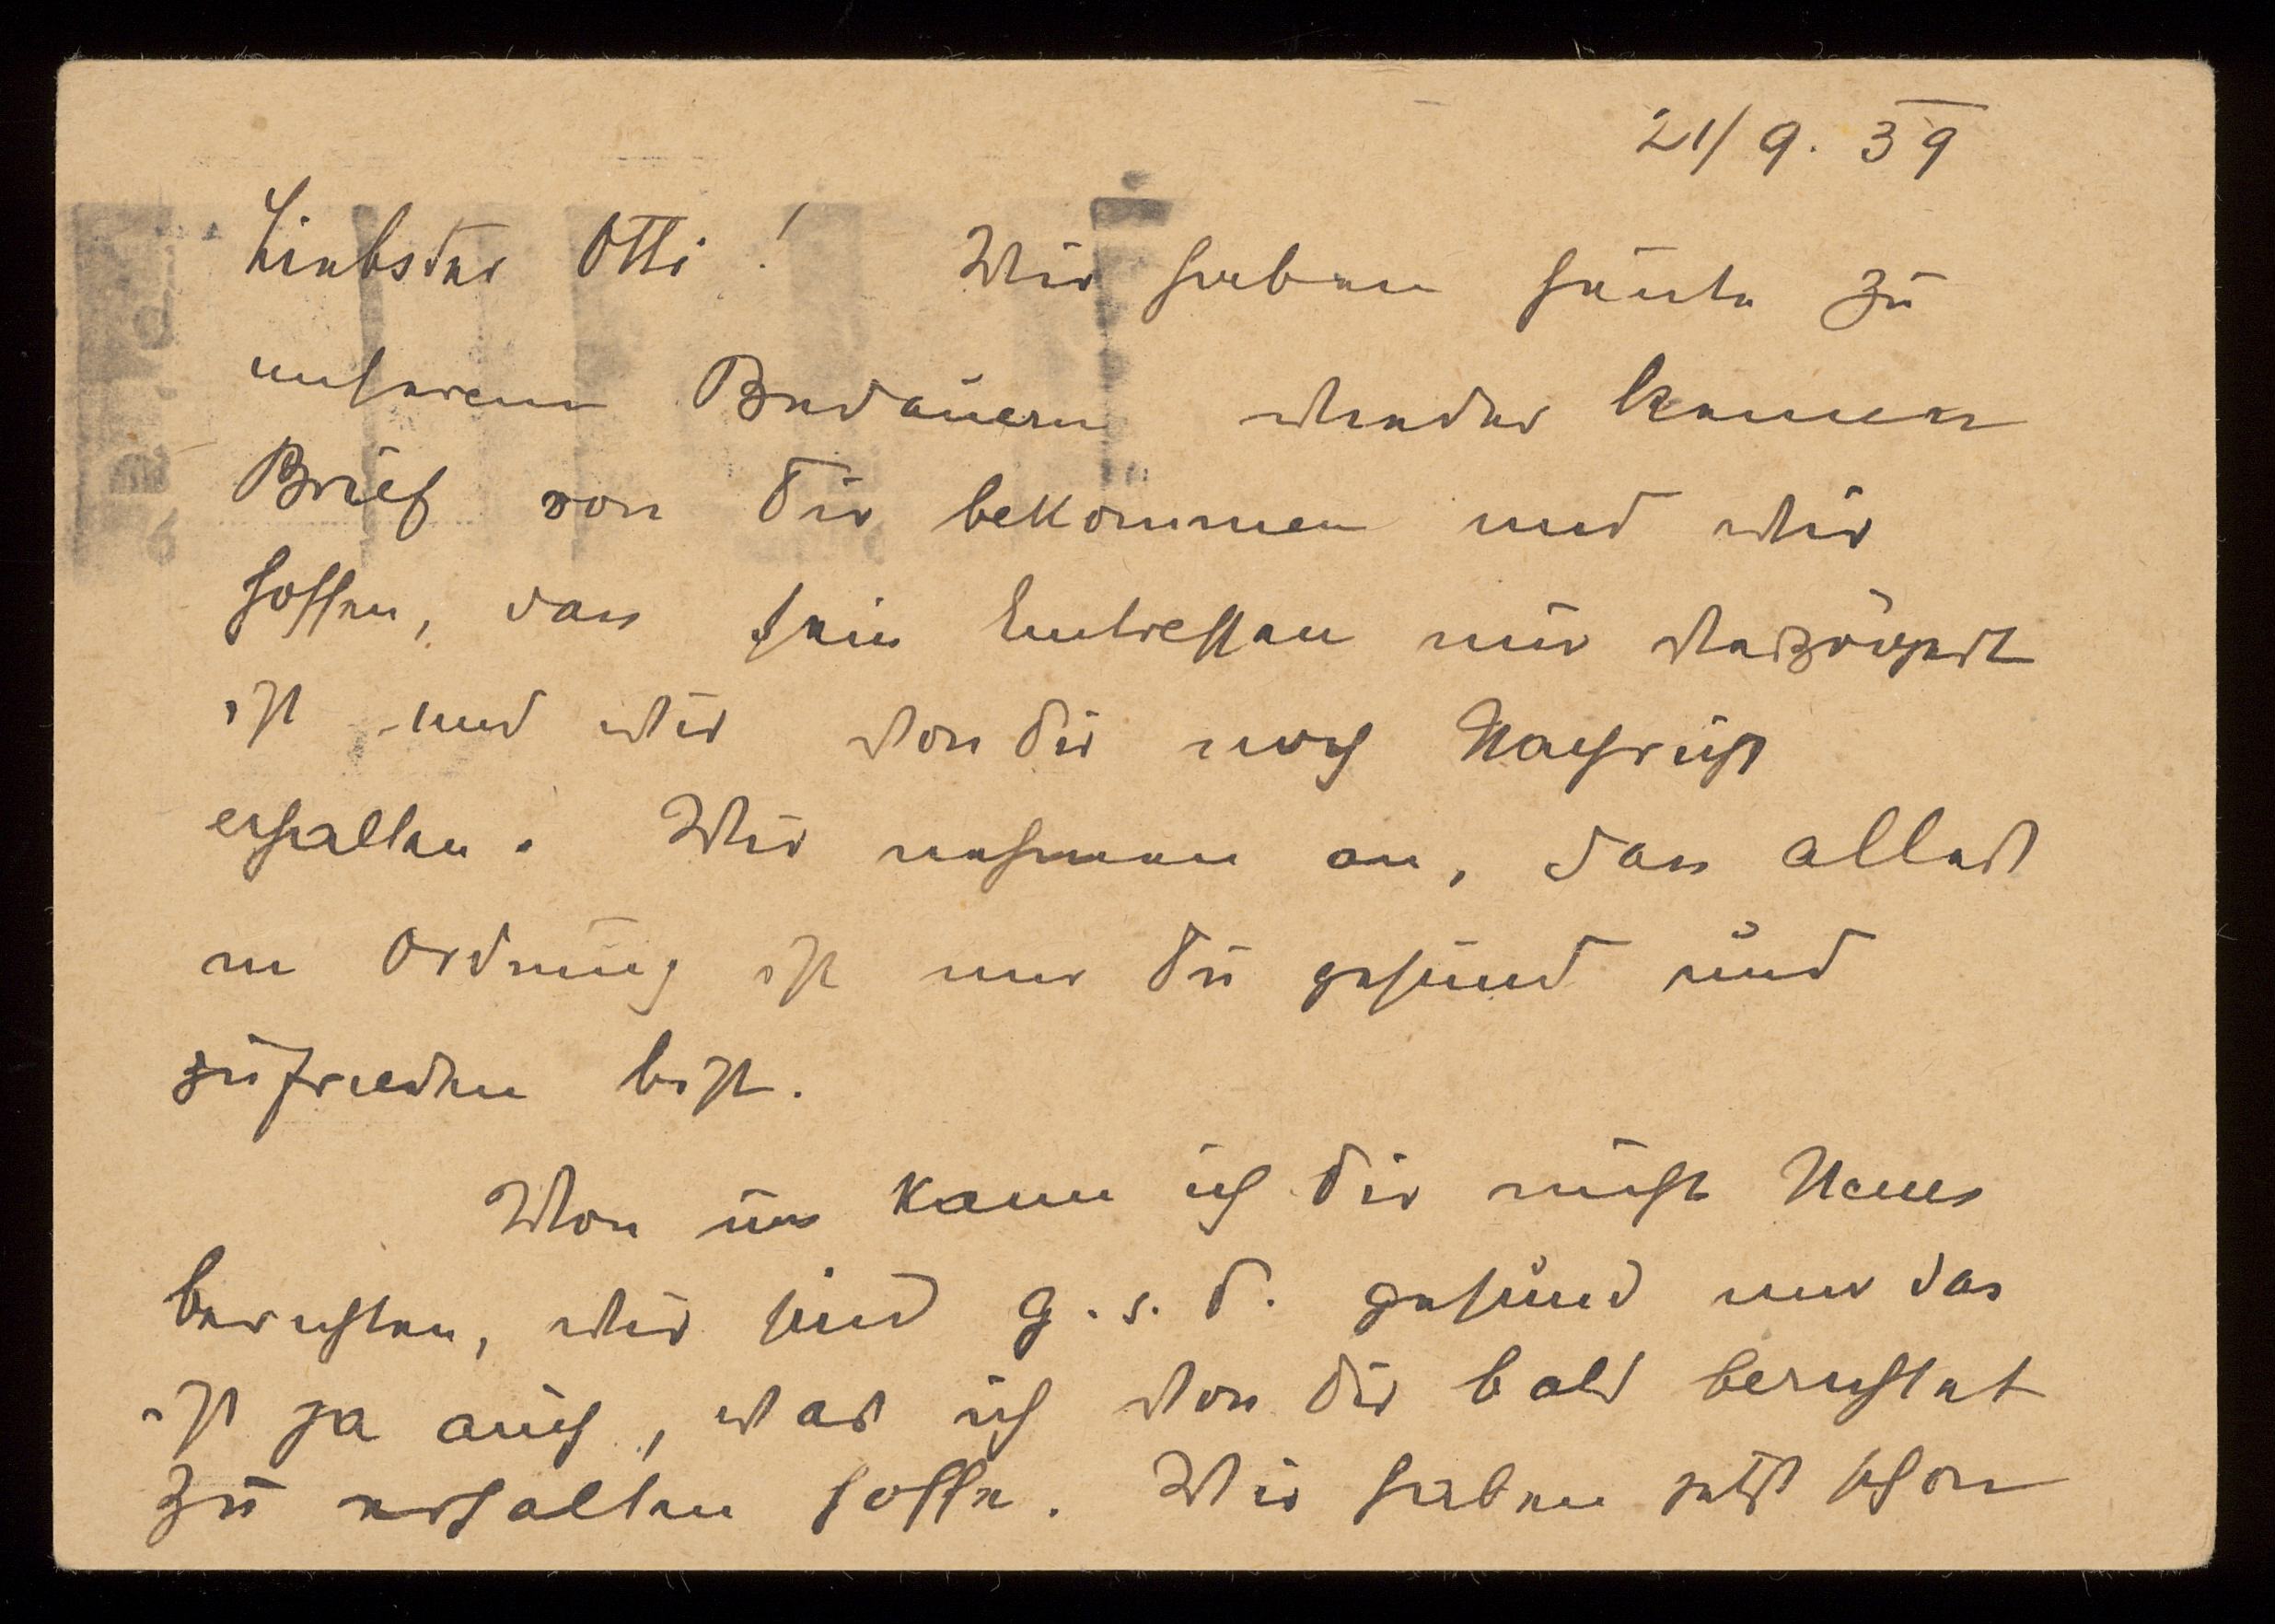 21/9. 39
Liebster Otti! Wir haben heute zu
unserem Bedauern wieder keinen
Brief von Dir bekommen und wir
hoffen, dass sein Eintreffen nur verzögert
ist und wir von Dir noch Nachricht
erhalten. Wir nehmen an, dass alles
in Ordnung ist und Du gesund und
zufrieden bist.
Von uns kann ich Dir nicht Neues
berichten, wir sind G. s. D. gesund und das
ist ja auch, was ich von Dir bald berichtet
zu erhalten hoffe. Wir haben jetzt schon